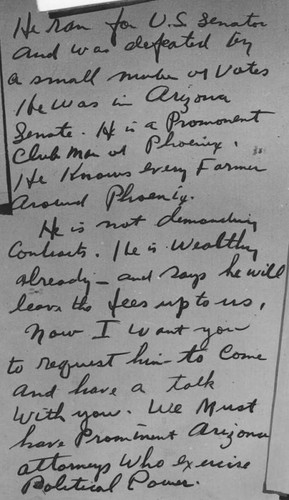 He ran for U.S. Senator
and was defeated by
a small number of Votes
He was in Arizona
Senate. He is a Promonent
Club Man of Phoenix.
He Knows every Farmer
around Phoenix.
He is not demanding
Contracts. He is Wealthy
already - and says he will
leave the fees up to us.
Now I want you
to request him to Come
and have a talk
With you. We Must
have Prominent Arizona
attorneys Who exercise
Political Power.